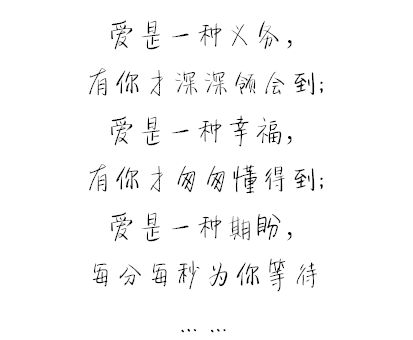 爱是一种义务，
有你才深深领会到；
爱是一种幸福，
有你才匆匆懂得到；
爱是一种期盼，
每分每秒为你等待
……